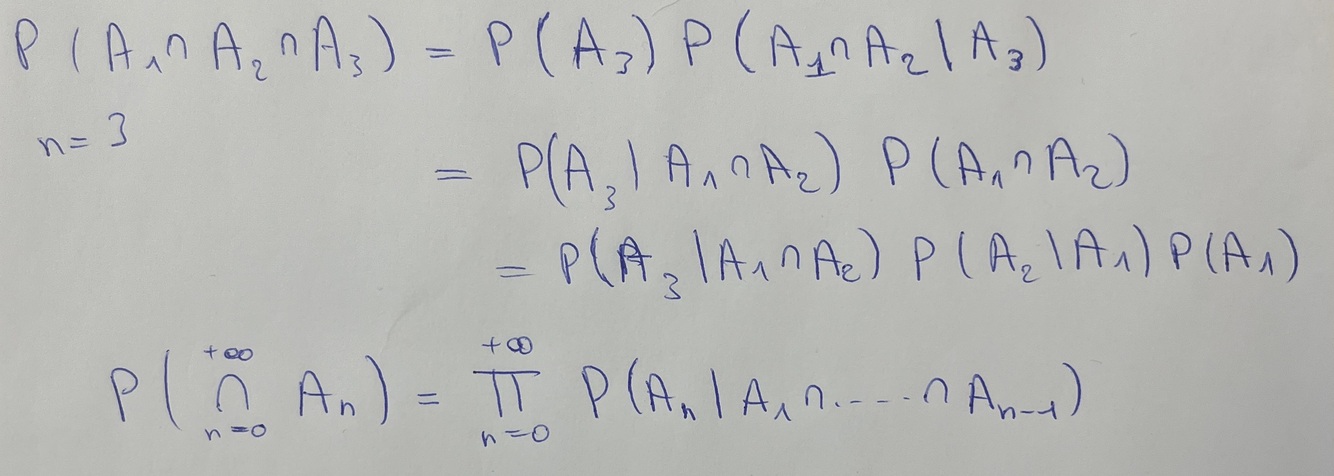 P(A₁∩A₂∩A₃) = P(A₃) P(A₁∩A₂|A₃)
n=3
= P(A₃|A₁∩A₂) P(A₁∩A₂)
= P(A₃|A₁∩A₂) P(A₂|A₁) P(A₁)
P(⋂_{n=0}^{+∞} Aₙ) = ∏_{n=0}^{+∞} P(Aₙ|A₁∩.....∩Aₙ₋₁)